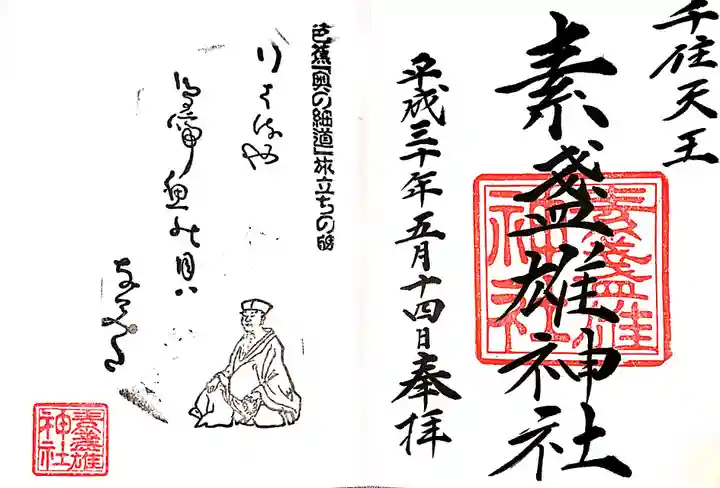 千住天王
素盞雄神社
素盞雄神社
平成三十年五月十四日奉拝
芭蕉『奥の細道』旅立ちの
行く春や
鳥啼魚の目は
なみだ
素盞雄神社